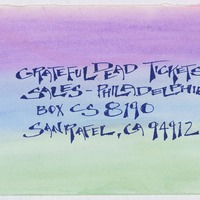 GRATEFUL DEAD TICKETS
SALES - PHILADELPHIE
BOX CS 8190
SAN RAFEL, CA 94912